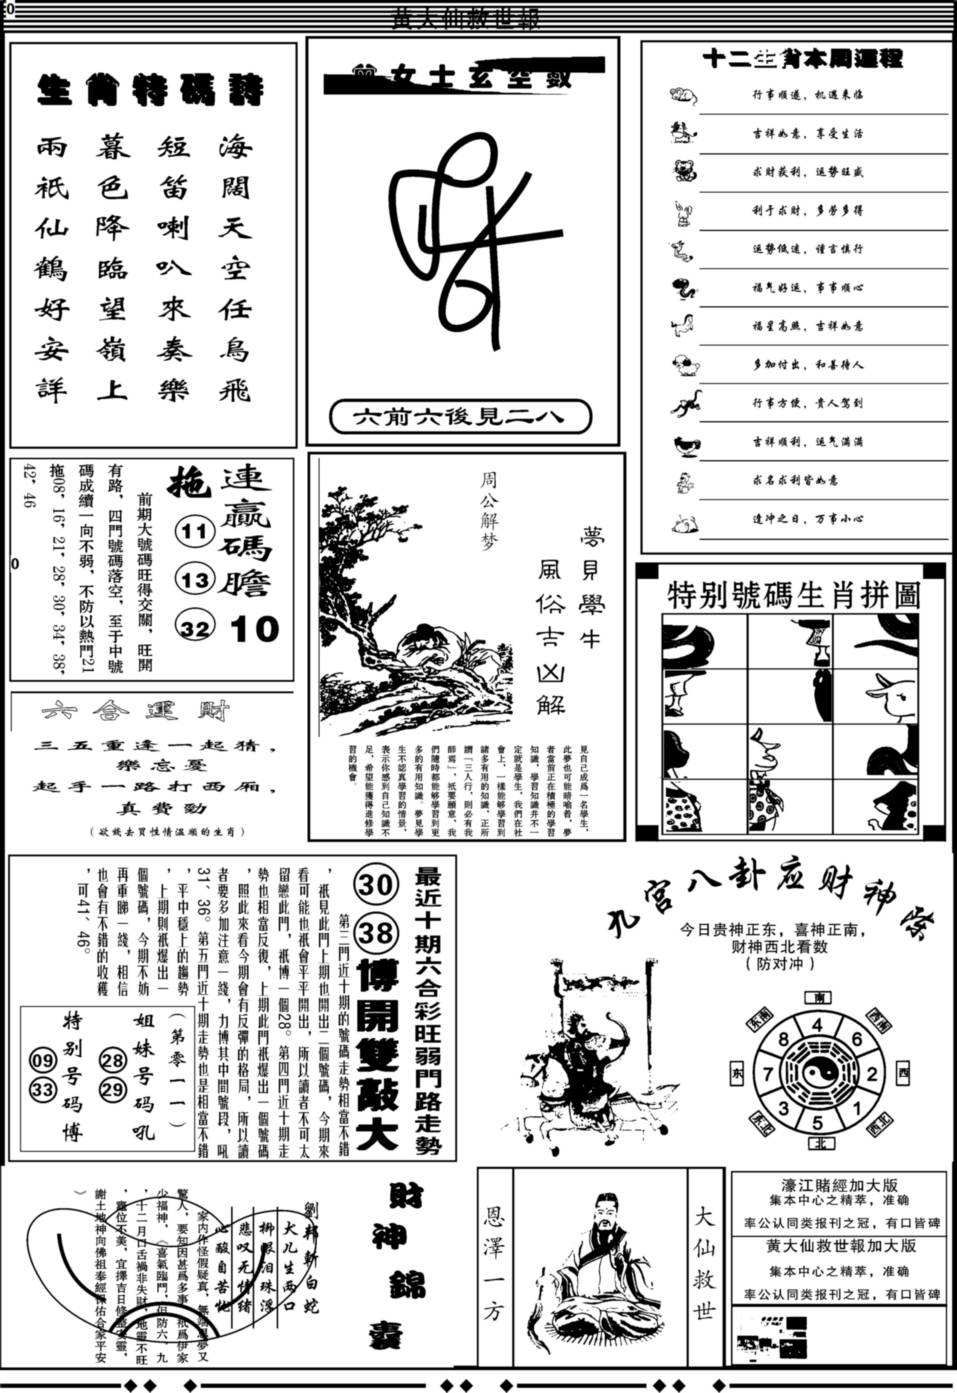 黃大仙救世報
生肖特碼詩
海闊天空任鳥飛
短笛喇叭來奏樂
暮色降臨望嶺上
兩祇仙鶴好安詳
曾女士玄空數
六前六後見二八
十二生肖本周運程
行事顺遂，机遇来临
吉祥如意，享受生活
求财获利，运势旺盛
利于求财，多劳多得
运势低迷，谨言慎行
福气好运，事事顺心
福星高照，吉祥如意
多加付出，和善待人
行事方便，贵人驾到
吉祥顺利，运气满满
求名求利皆如意
逢冲之日，万事小心
連贏碼膽 10
拖 11 13 32
前期大號碼旺得交關，旺開
有路，四門號碼落空，至于中號
碼成績一向不弱，不防以熱門21
拖08，16，21，28，30，34，38，
42，46
六合運財
三五重逢一起猜，
樂忘憂
起手一路打西厢，
真費勁
（欲钱去買性情溫順的生肖）
周公解梦
夢見學牛
風俗吉凶解
見自己成爲一名學生，
此夢也可能暗喻着，夢
者當前正在積極的學習
知識，學習知識并不一
定就是學生，我們在社
會上，一樣能够學習到
諸多有用的知識，正所
謂『三人行，則必有我
師焉』，祇要願意，我
們隨時都能够學習到更
多的有用知識。夢見學
生不認真學習的情景，
表示你感到自己知識不
足，希望能獲得進修學
習的機會。
特别號碼生肖拼圖
最近十期六合彩旺弱門路走勢
30 38 博開雙敲大
第三門近十期的號碼走勢相當不錯
，祇見此門上期也開出二個號碼，今期來
看可能也祇會平平開出，所以讀者不可太
留戀此門，祇博一個28。第四門近十期走
勢也相當反復，上期此門祇爆出一個號碼
，照此來看今期會有反彈的格局，所以讀
者要多加注意一綫，力博其中間號段，吼
31、36。第五門近十期走勢也是相當不錯
，平中穩上的趨勢
，上期則祇爆出一
個號碼，今期不妨
再重睇一綫，相信
也會有不錯的收穫
，可41、46。
（第零一一）
姐妹号码吼
28 29
特别号码博
09 33
九宫八卦应财神际
今日贵神正东，喜神正南，
财神西北看数
（防对冲）
南
东南
西南
东
西
东北
西北
北
4
6
2
1
5
3
7
8
財神錦囊
劉邦斬白蛇
大兒生两口
柳眼泪珠浮
悲叹无情绪
心酸自苦忙
家内作怪假疑真，無端惡夢又
驚人，要知因甚爲多事，祇爲伊家
少福神，︵喜氣臨門，但防六、九
、十二月口舌禍非失財，地靈不旺
，竈位不美，宜擇吉日修整安靈，
謝土地神向佛祖奉經保佑合家平安
︶
恩澤一方
大仙救世
濠江賭經加大版
集本中心之精萃，准确
率公认同类报刊之冠，有口皆碑
黄大仙救世報加大版
集本中心之精萃，准确
率公认同类报刊之冠，有口皆碑